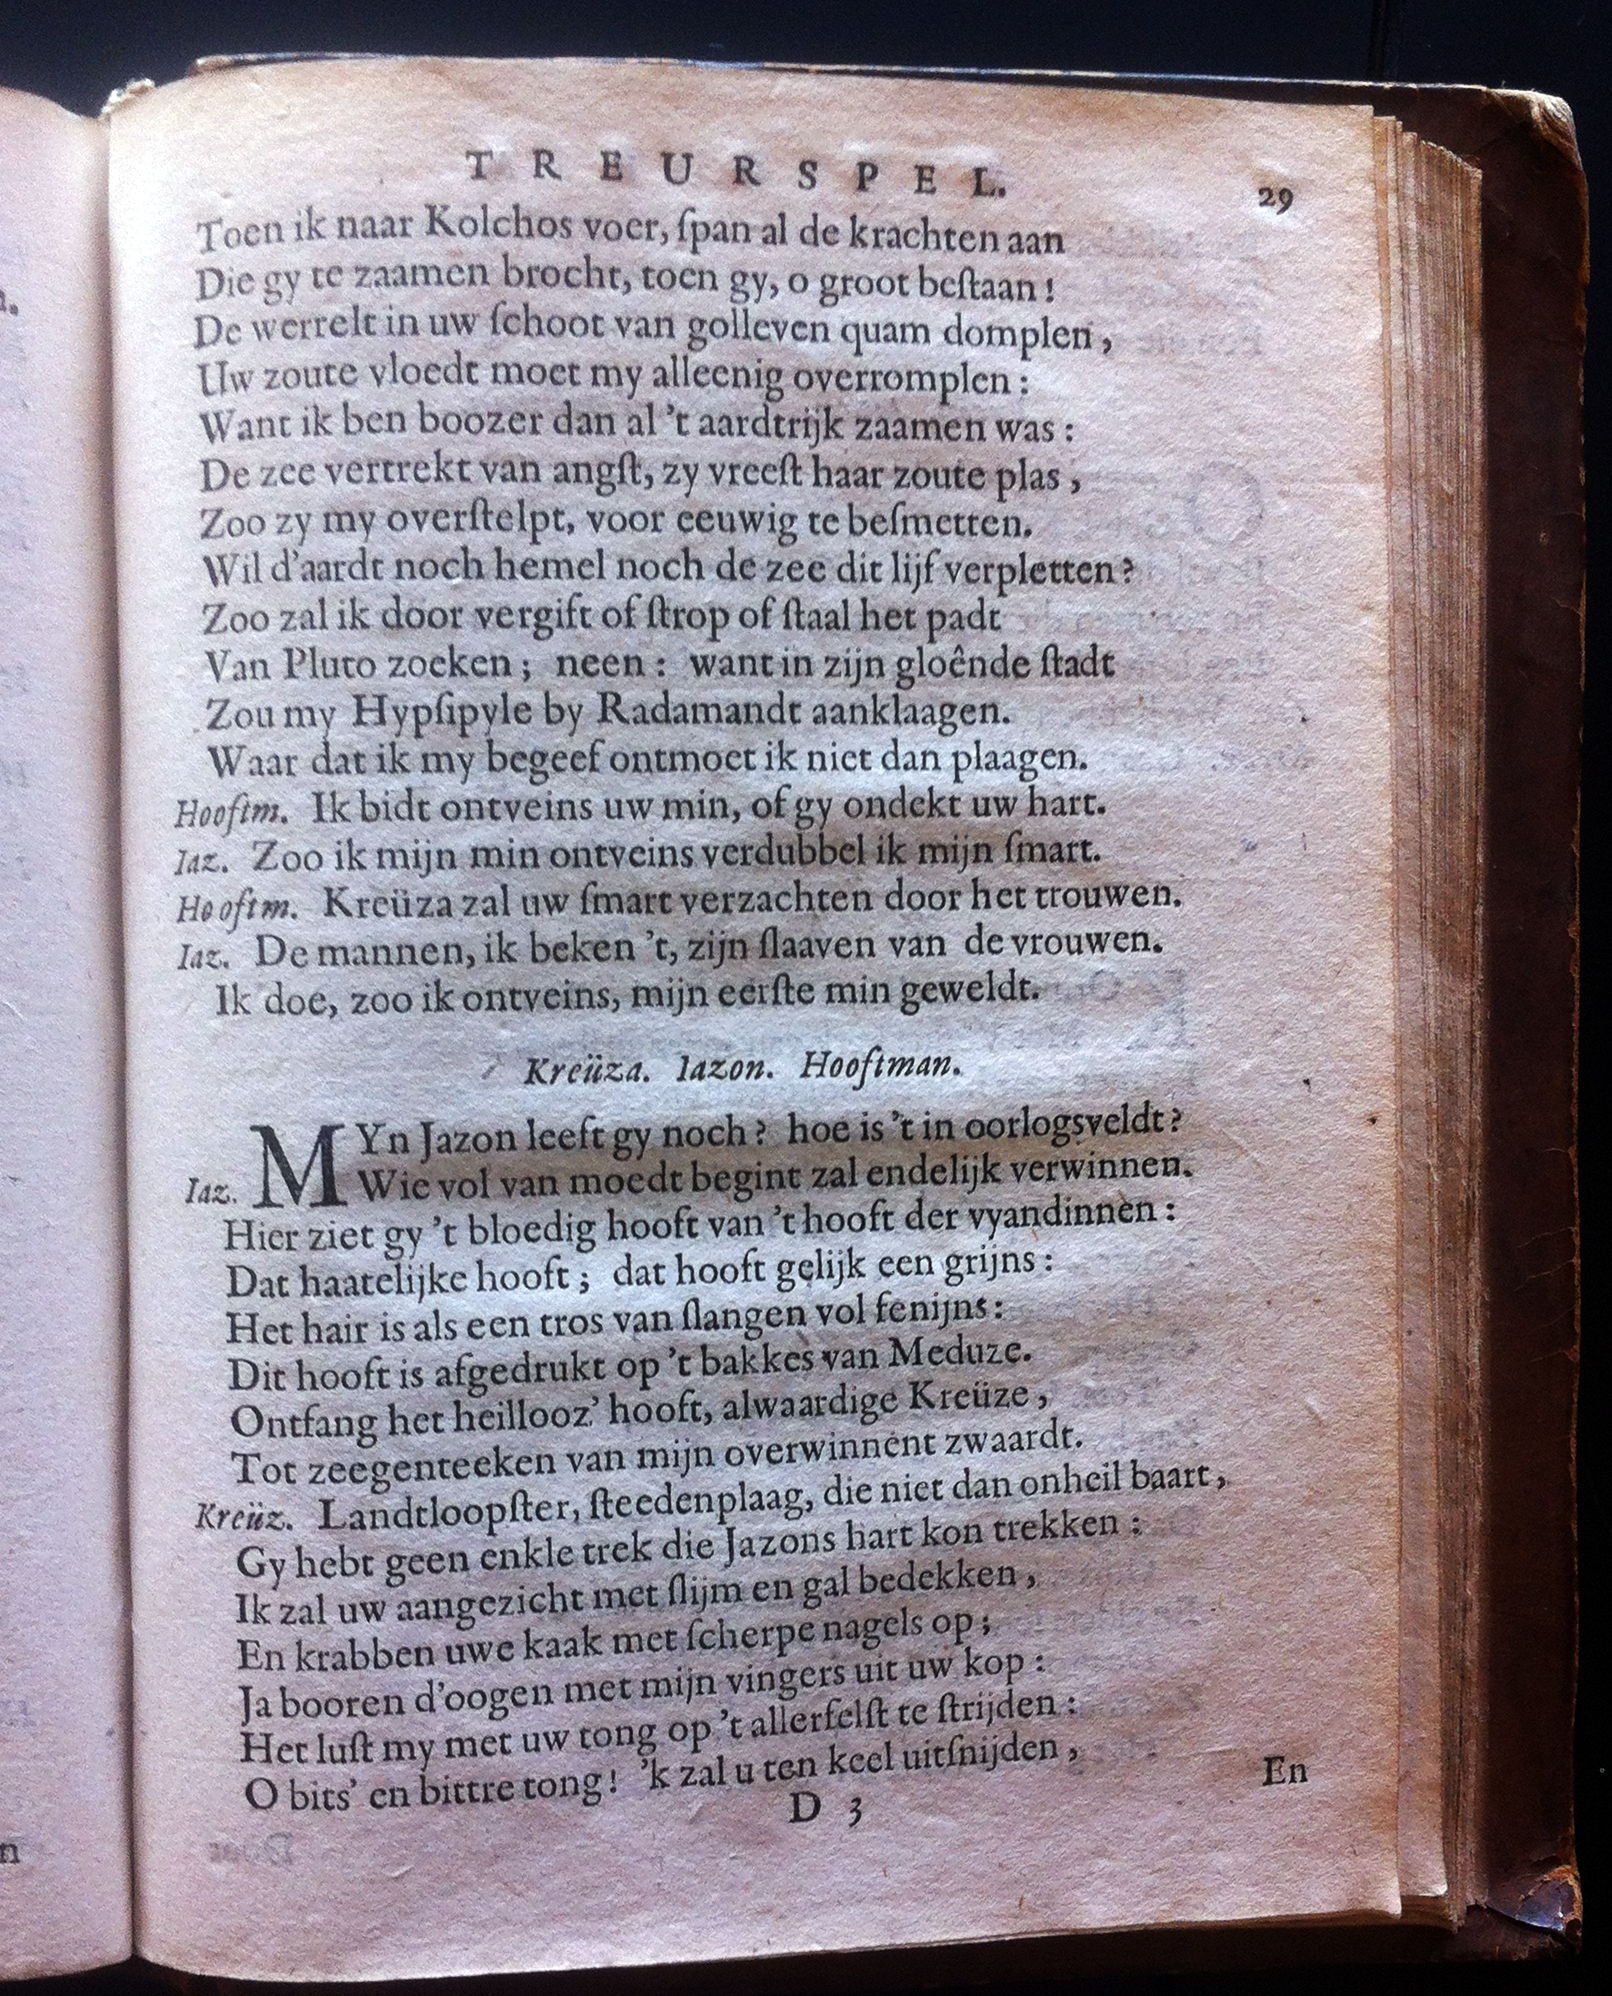 TREURSPEL. 29
Toen ik naar Kolchos voer, ſpan al de krachten aan
Die gy te zaamen brocht, toen gy, o groot beſtaan!
De werrelt in uw ſchoot van golleven quam domplen,
Uw zoute vloedt moet my alleenig overromplen:
Want ik ben boozer dan al 't aardtrijk zaamen was:
De zee vertrekt van angſt, zy vreeſt haar zoute plas,
Zoo zy my overſtelpt, voor eeuwig te beſmetten.
Wil d'aardt noch hemel noch de zee dit lijf verpletten?
Zoo zal ik door vergift of ſtrop of ſtaal het padt
Van Pluto zoeken; neen: want in zijn gloênde ſtadt
Zou my Hypſipyle by Radamandt aanklaagen.
Waar dat ik my begeef ontmoet ik niet dan plaagen.
Hooftm. Ik bidt ontveins uw min, of gy ondekt uw hart.
Iaz. Zoo ik mijn min ontveins verdubbel ik mijn ſmart.
Hooftm. Kreüza zal uw ſmart verzachten door het trouwen.
Iaz. De mannen, ik beken 't, zijn ſlaaven van de vrouwen.
Ik doe, zoo ik ontveins, mijn eerſte min geweldt.
Kreüza. Iazon. Hooftman.
MYn Jazon leeft gy noch? hoe is 't in oorlogsveldt?
Iaz. Wie vol van moedt begint zal endelijk verwinnen.
Hier ziet gy 't bloedig hooft van 't hooft der vyandinnen:
Dat haatelijke hooft; dat hooft gelijk een grijns:
Het hair is als een tros van ſlangen vol fenijns:
Dit hooft is afgedrukt op 't bakkes van Meduze.
Ontfang het heillooz' hooft, alwaardige Kreüze,
Tot zeegenteeken van mijn overwinnent zwaardt.
Kreüz. Landtloopſter, ſteedenplaag, die niet dan onheil baart,
Gy hebt geen enkle trek die Jazons hart kon trekken:
Ik zal uw aangezicht met ſlijm en gal bedekken,
En krabben uwe kaak met ſcherpe nagels op;
Ja booren d'oogen met mijn vingers uit uw kop:
Het luſt my met uw tong op 't allerfelſt te ſtrijden:
O bits' en bittre tong! 'k zal u ten keel uitſnijden,
D 3 En